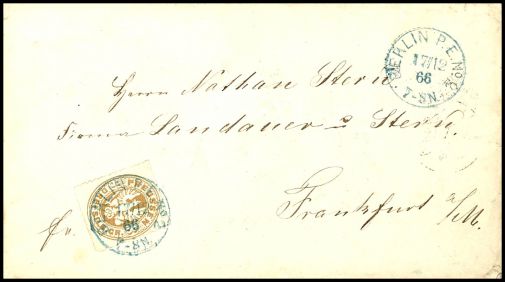 BERLIN P.E. No 2.
17/12
66
7-8N.
Herrn Nathan Stern
Firma Landauer & Stern.
Frankfurt a/M.
fr.
66
7-8N